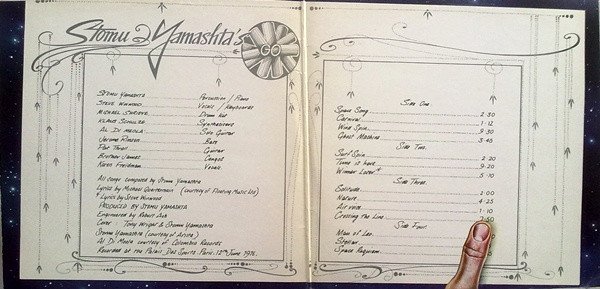 Stomu Yamashta's GO
STOMU YAMASHTA Percussion / Piano
STEVE WINWOOD Vocals / Keyboards
MICHAEL SHRIEVE Drum kit
KLAUS SCHULZE Synthesizers
AL DI MEOLA Solo Guitar
Jerome Rimson Bass
Pat Thrall Guitar
Brother James Congas
Karen Friedman Vocals
All songs composed by Stomu Yamashta
Lyrics by Michael Quartermain (courtesy of Floating Music Ltd)
* Lyrics by Steve Winwood
PRODUCED BY STOMU YAMASHTA
Engineered by Robert Ash
Cover Tony Wright & Stomu Yamashta
Stomu Yamashta (courtesy of Arista)
Al Di Meola courtesy of Columbia Records
Recorded at the Palais Des Sports Paris: 12th June 1976.
Side One.
Space Song 2·30
Carnival 1·12
Wind Spin 9·30
Ghost Machine 3·45
Side Two.
Surf Spin 2·20
Time is here 9·20
Winner Loser * 5·10
Side Three.
Solitude 2·00
Nature 4·25
Air voice 1·10
Crossing the line
Side Four.
Man of Leo
Stellar
Space Requiem